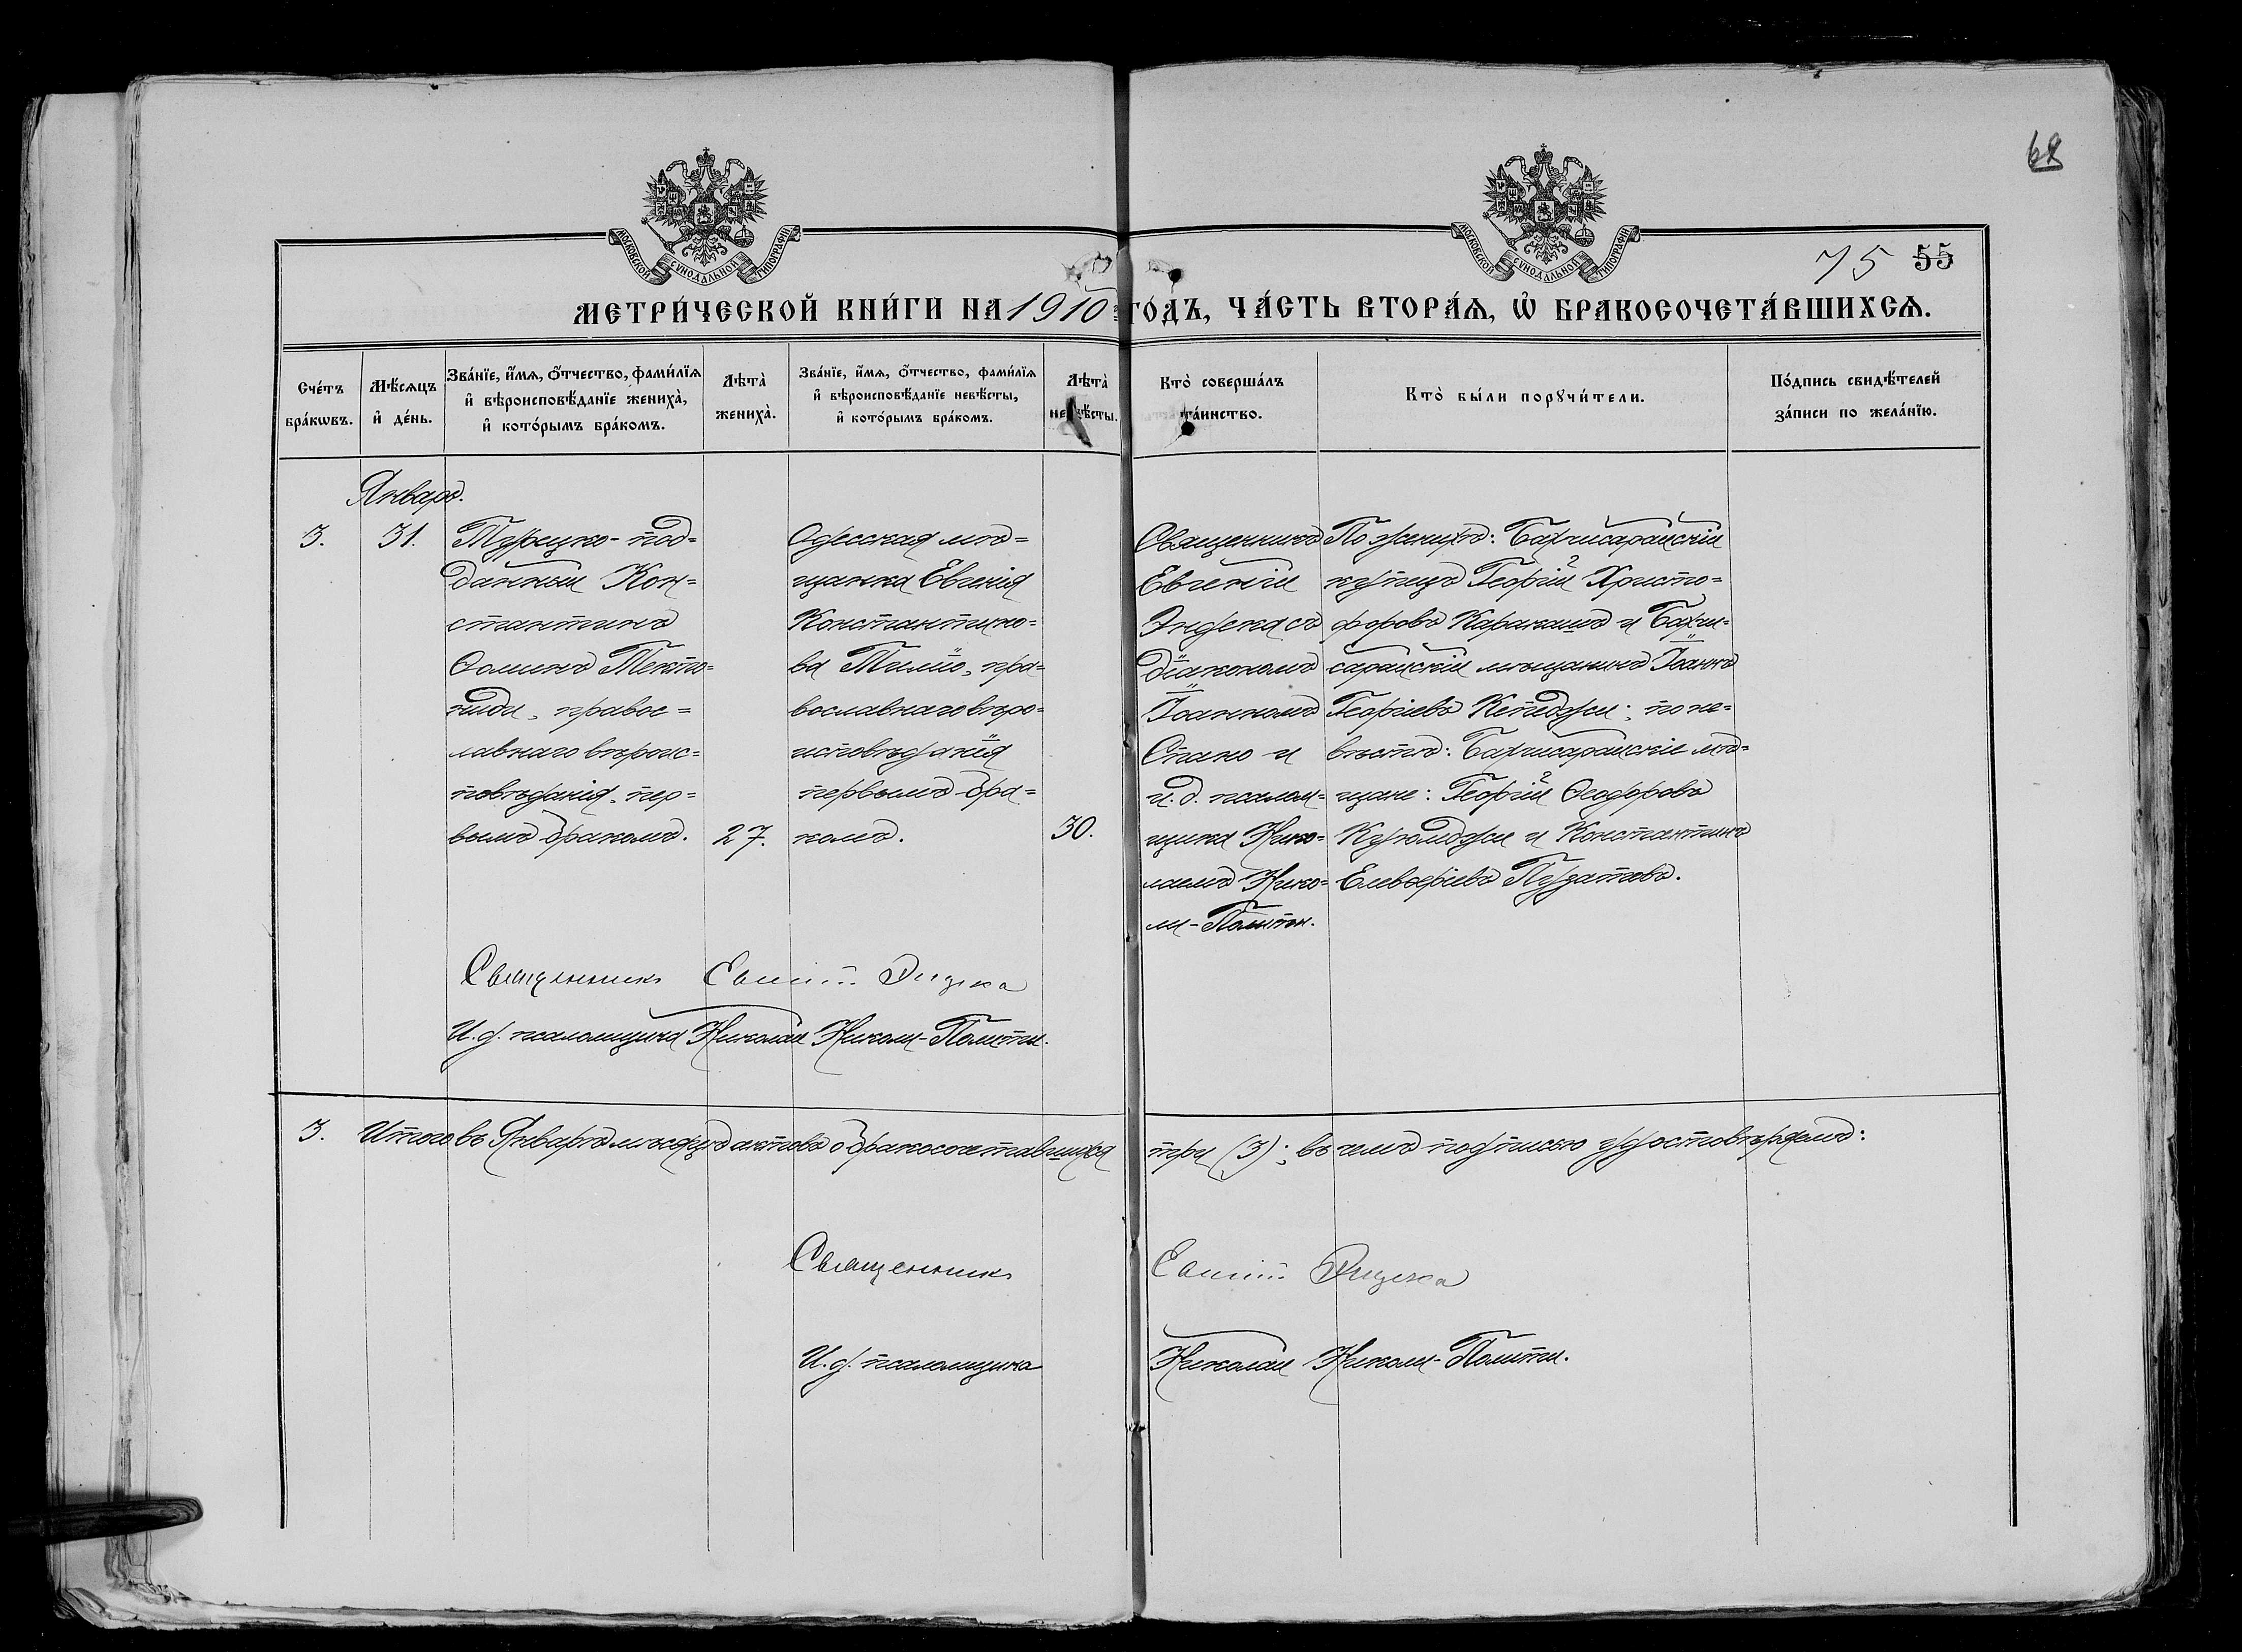 68
МОСКОВСКОЙ СѴНОДАЛЬНОЙ ТИПОГРАФІИ
МОСКОВСКОЙ СѴНОДАЛЬНОЙ ТИПОГРАФІИ
75 55
МЕТРИ́ЧЕСКОЙ КНИ́ГИ НА 1910 ГО́ДЪ, ЧА́СТЬ ВТОРА́Ѧ, Ѡ҆ БРАКОСОЧЕТА́ВШИХСѦ.
Сче́тъ бра́кѡвъ.
Мѣ́сѧцъ и҆ де́нь.
Зва́нїе, и҆́мѧ, ѻ҆́тчество, фами́лїѧ и҆ вѣроисповѣ́данїе жениха̀, и҆ кото́рымъ бра́комъ.
Лѣта̀ жениха̀.
Зва́нїе, и҆́мѧ, ѻ҆́тчество, фами́лїѧ и҆ вѣроисповѣ́данїе невѣ́сты, и҆ кото́рымъ бра́комъ.
Лѣта̀ невѣ́сты.
Кто̀ соверша́лъ та́инство.
Кто̀ бы́ли порꙋчи́тели.
По́дпись свидѣ́телей за́писи по жела́нїю.
Январь.
3.
31.
Турецко-под=
данный Кон=
стантинъ
Ѳоминъ Текто=
ниди, правос=
лавнаго вѣроис=
повѣданія, пер=
вымъ бракомъ.
27.
Одесская мѣ=
щанка Евгенія
Константино=
ва Тиліо, пра=
вославнаго вѣро=
исповѣданія
первымъ бра=
комъ.
30.
Священникъ
Евгеній
Эндека съ
діакономъ
Іоанномъ
Спано и
и. д. псалом=
щика Нико=
лаемъ Нико=
ли-Полити.
По женихѣ: Бахчисарайскій
купецъ Георгій Христо=
форовъ Каракашъ и Бахчи=
сарайскій мѣщанинъ Іоаннъ
Георгіевъ Кепеджи; по не=
вѣстѣ: Бахчисарайскіе мѣ=
щане: Георгій Ѳеодоровъ
Куюмджи и Константинъ
Елевѳеріевъ Пузатовъ.
Священникъ Евгеній Эндека
И. д. псаломщика Николай Николи-Полити.
3. Итого въ Январѣ мѣсяцѣ актовъ о бракосочетавшихся три (3); въ чемъ подписью удостовѣряемъ:
Священникъ Евгеній Эндека
И. д. псаломщика Николай Николи-Полити.